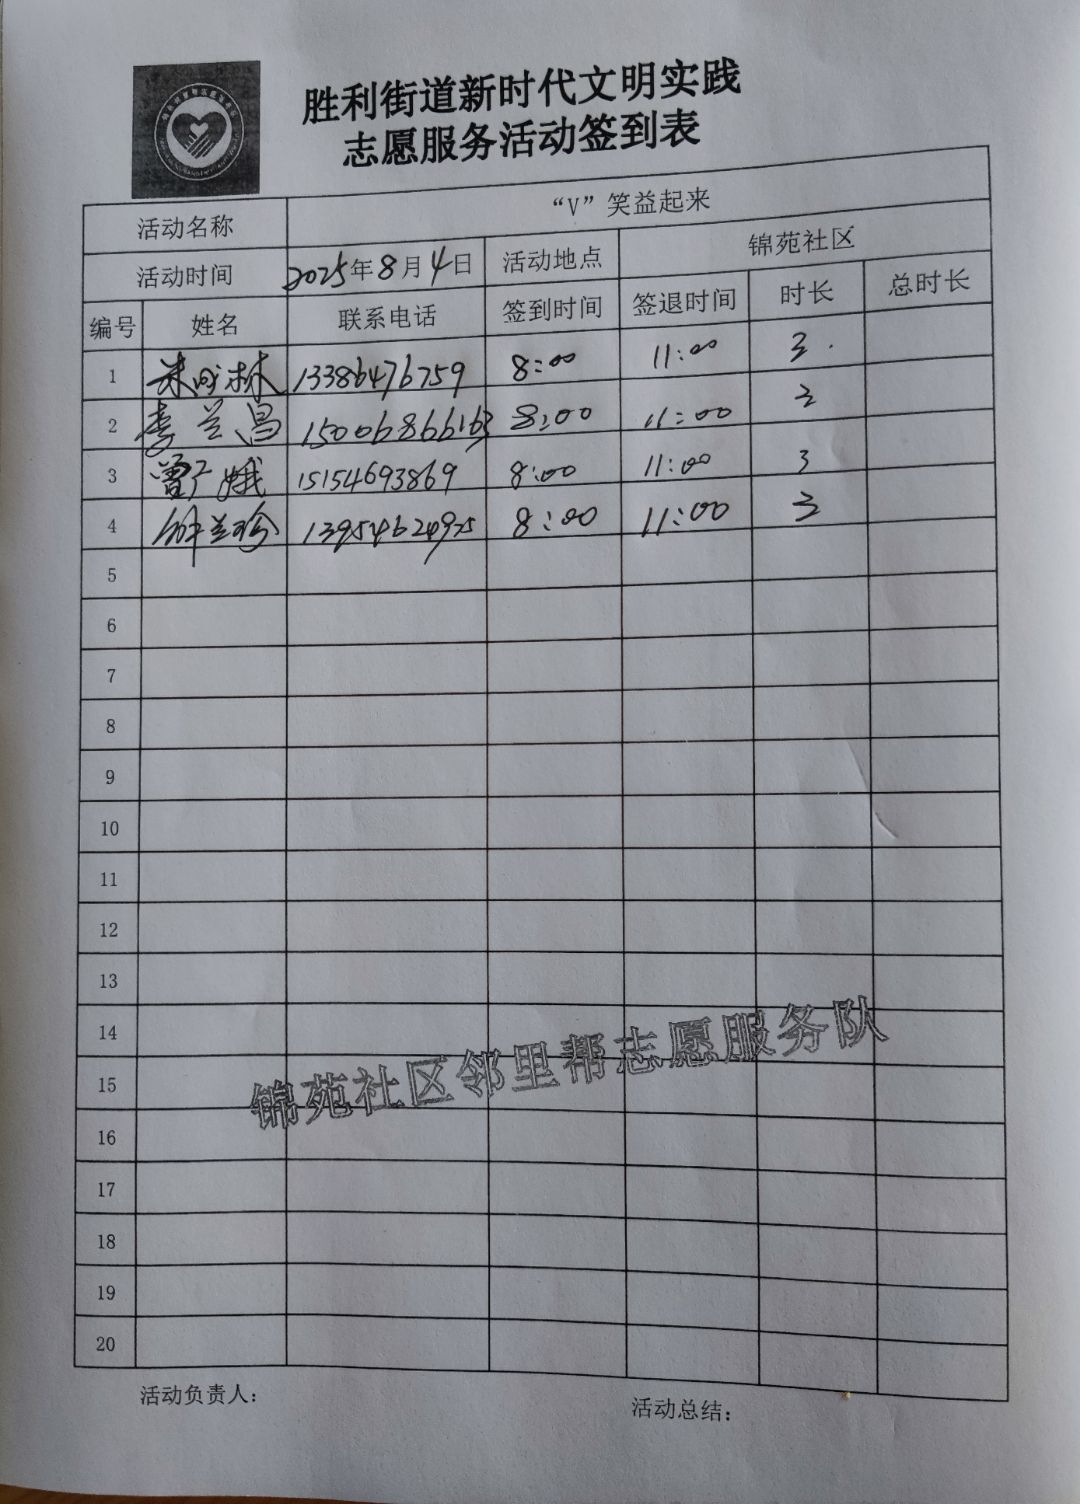 胜利街道新时代文明实践
志愿服务活动签到表
活动名称 “V”笑益起来
活动时间 2025年8月4日 活动地点 锦苑社区
编号 姓名 联系电话 签到时间 签退时间 时长 总时长
1 朱成林 13386476759 8:00 11:00 3
2 李兰昌 15006866163 8:00 11:00 3
3 曾广娥 15154693869 8:00 11:00 3
4 钟兰玲 13954624975 8:00 11:00 3
5
6
7
8
9
10
11
12
13
14
15
16
17
18
19
20
锦苑社区邻里帮志愿服务队
活动负责人： 活动总结：